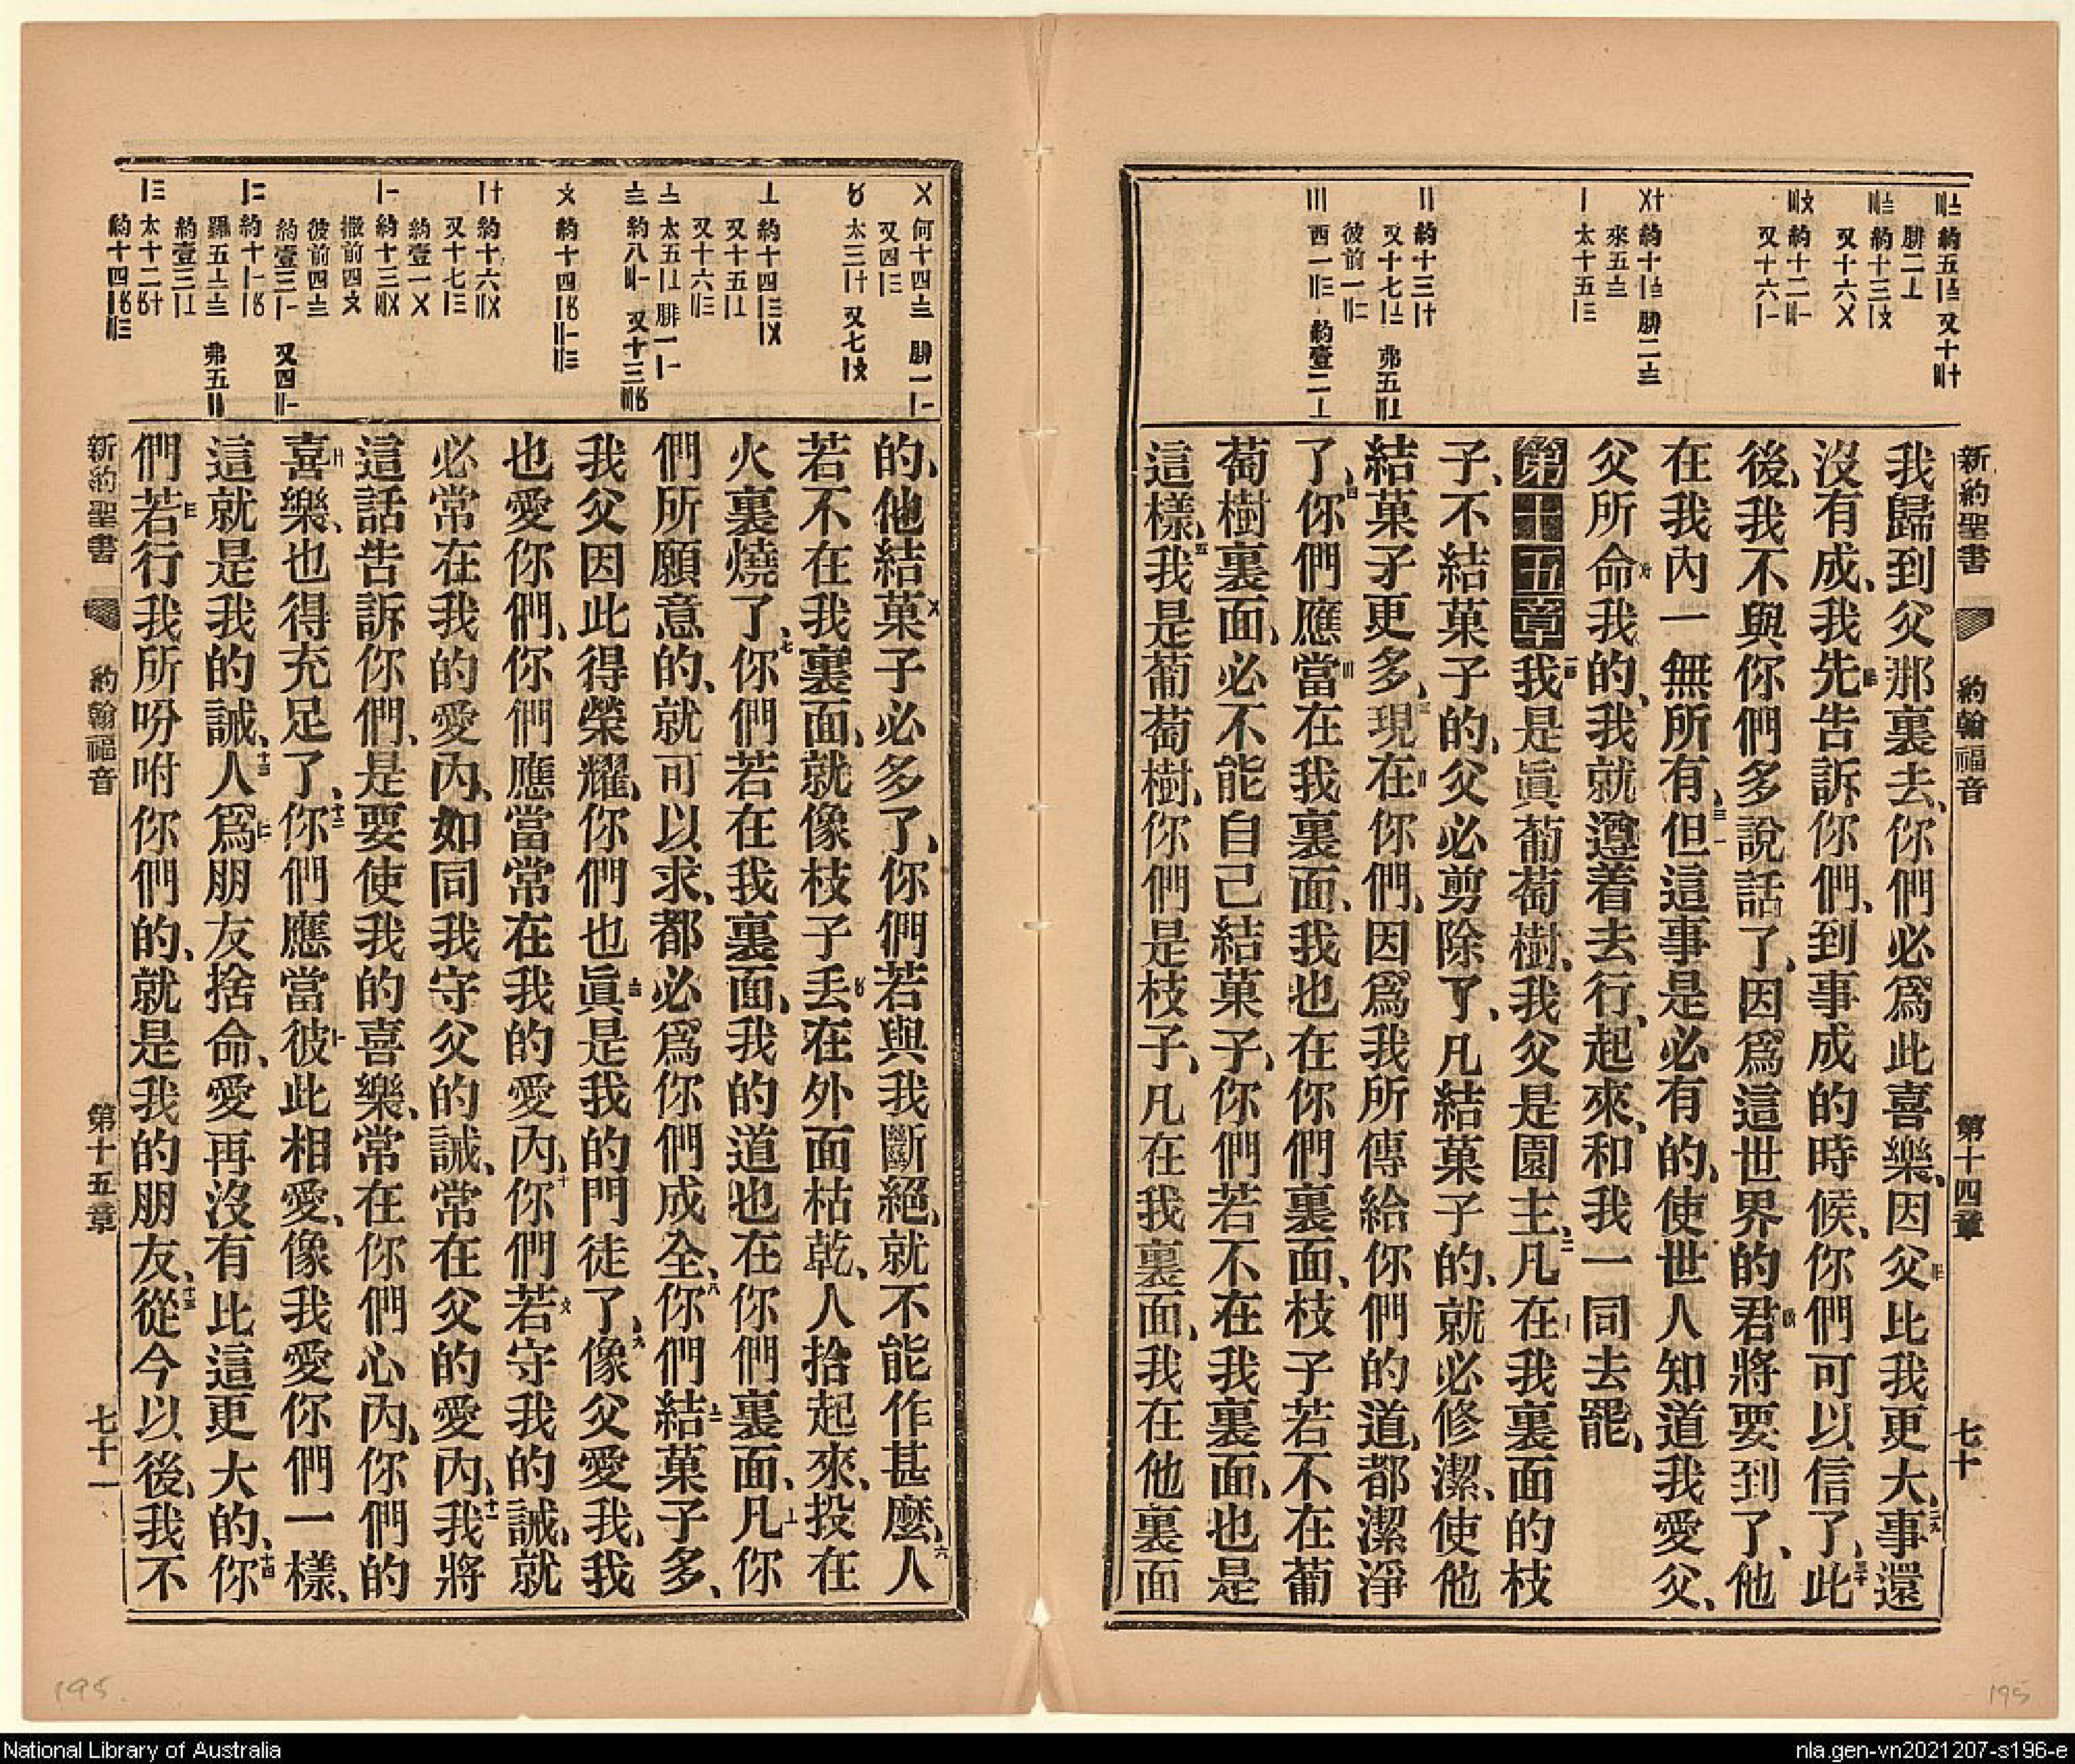 新約聖書 約翰福音 第十四章 七十
我歸到父那裏去、你們必爲此喜樂、因父比我更大、事還
沒有成、我先告訴你們、到事成的時候、你們可以信了、此
後、我不與你們多說話了、因爲這世界的君將要到了、他
在我內一無所有、但這事是必有的、使世人知道我愛父、
父所命我的、我就遵着去行、起來、和我一同去罷、
第十五章我是眞葡萄樹、我父是園主、凡在我裏面的枝
子、不結菓子的、父必剪除了、凡結菓子的、就必修潔、使他
結菓子更多、現在你們、因爲我所傳給你們的道、都潔淨
了、你們應當在我裏面、我也在你們裏面、枝子若不在葡
萄樹裏面、必不能自己結菓子、你們若不在我裏面、也是
這樣、我是葡萄樹、你們是枝子、凡在我裏面、我在他裏面
的、他結菓子必多了、你們若與我斷絕、就不能作甚麼、人
若不在我裏面、就像枝子丢在外面枯乾、人拾起來、投在
火裏燒了、你們若在我裏面、我的道也在你們裏面、凡你
們所願意的、就可以求、都必爲你們成全、你們結菓子多、
我父因此得榮耀、你們也眞是我的門徒了、像父愛我、我
也愛你們、你們應當常在我的愛內、你們若守我的誡、就
必常在我的愛內、如同我守父的誡、常在父的愛內、我將
這話告訴你們、是要使我的喜樂、常在你們心內、你們的
喜樂、也得充足了、你們應當彼此相愛、像我愛你們一樣、
這就是我的誡、人爲朋友捨命、愛再沒有比這更大的、你
們若行我所吩咐你們的、就是我的朋友、從今以後、我不
新約聖書 約翰福音 第十五章 七十一
195
195
National Library of Australia
nla.gen-vn2021207-s196-e